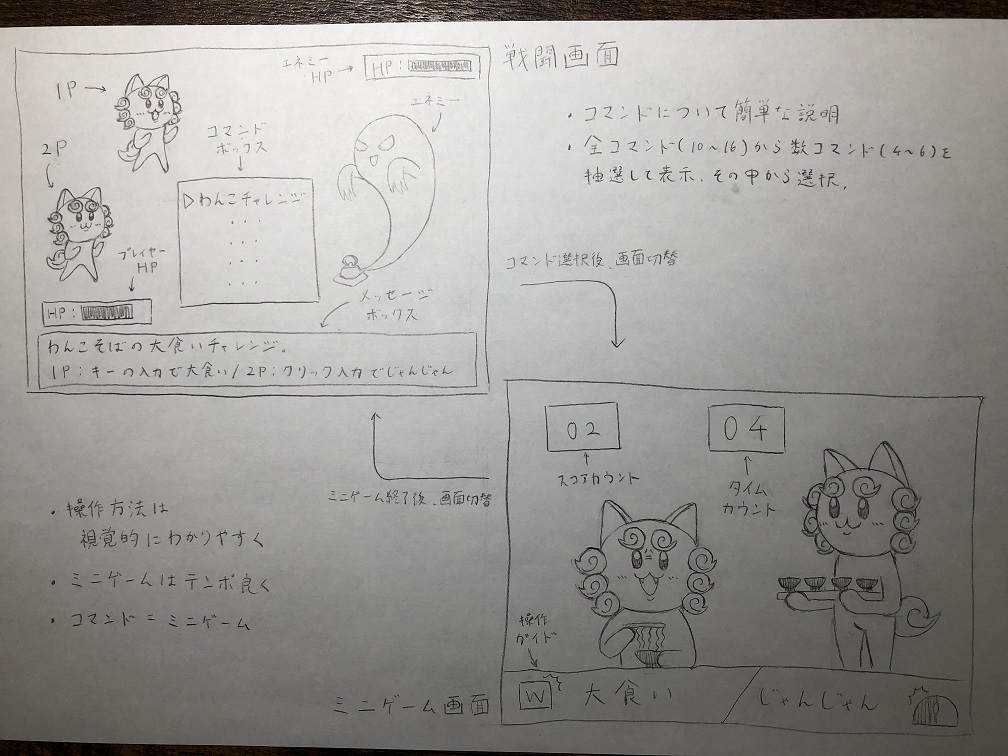 戦闘画面
・コマンドについて簡単な説明
・全コマンド(10～16)から数コマンド(4～6)を
抽選して表示、その中から選択。
1P→
2P
エネミー
HP→
HP:
エネミー
コマンド
ボックス
▷わんこチャレンジ
・・・
・・・
・・・
・・・
プレイヤー
HP
HP:
メッセージ
ボックス
わんこそばの大食いチャレンジ。
1P:キーの入力で大食い/2P:クリック入力でじゃんじゃん
コマンド選択後、画面切替
ミニゲーム終了後、画面切替
・操作方法は
視覚的にわかりやすく
・ミニゲームはテンポ良く
・コマンド=ミニゲーム
ミニゲーム画面
02
スコアカウント
04
タイム
カウント
操作
ガイド
W
大食い
じゃんじゃん